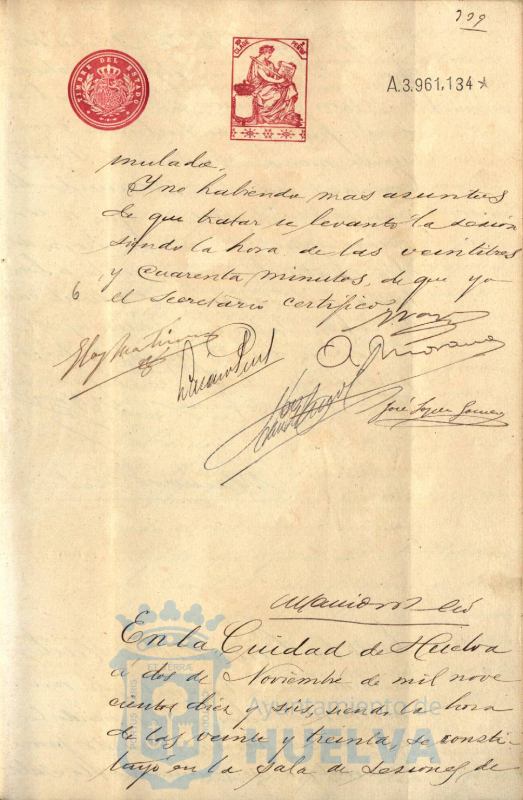 339
TIMBRE DEL ESTADO
A.3.961,134*
mulada.
Y no habiendo mas asuntos
de que tratar se levantó la sesión
siendo la hora de las veintitres
y cuarenta minutos, de que yo
el secretario certifico
José López Gómez
En la Ciudad de Huelva
á dos de Noviembre de mil nove
cientos diez y seis, siendo la hora
de las veinte y treinta, se consti-
tuyó en la sala de sesiones de
Ayuntamiento de
HUELVA